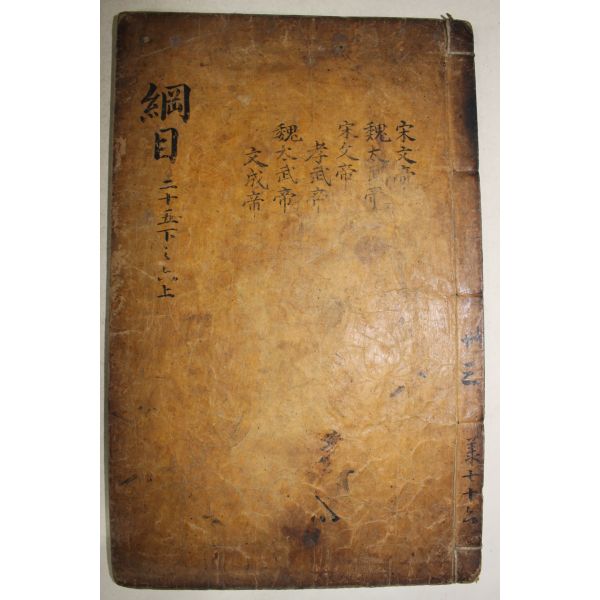 綱目
二十五下之六上
宋文帝
魏太武帝
宋文帝
孝武帝
魏太武帝
文成帝
七十六